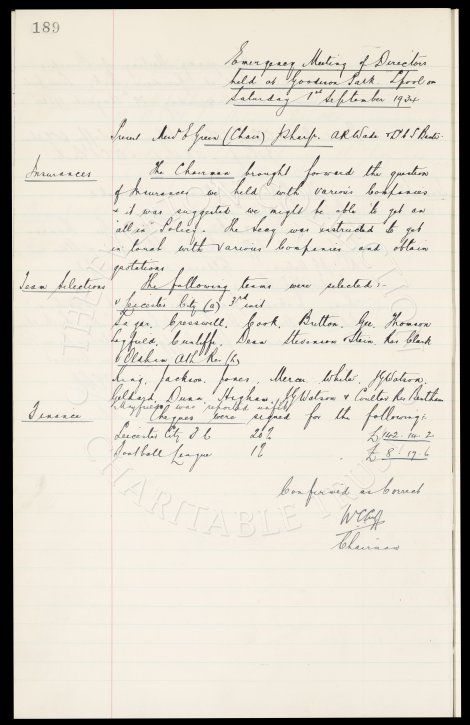 189
Emergency Meeting of Directors
held at Goodison Park L'pool on
Saturday 1st September 1934
Present Messrs E Green (Chair) J Sharp. A R Wade
Insurances
The Chairman brought forward the question
of Insurances we held with various Companies
& it was suggested we might be able to get an
"all in" Policy. The Secy was instructed to get
in touch with various Companies and obtain
quotations
Team Selections
The following teams were selected :-
v Leicester City (a) 3rd inst
Sagar. Cresswell. Cook. Britton. Gee. Thomson
Cunliffe. Dean Stevenson & Stein Res Clark
v Oldham Ath. Res (h)
King. Jackson. Jones. Mercer White. J G Watson.
Geldard. Dunn. Higham. & Coulter Res Bentham
was reported unfit
Finance
Cheques were signed for the following :-
Leicester City F C 20% £142.14.2
Football League 1% £8.17.6
Confirmed as Correct
Chairman
THE
CHARITABLE TRUST